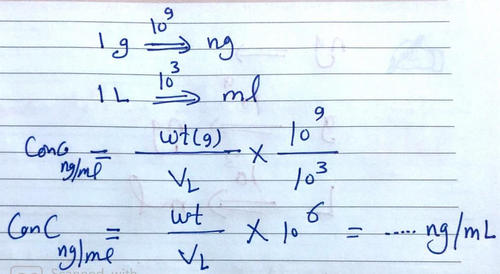 1 g 10⁹ ⟹ ng
1 L 10³ ⟹ ml
Conc ng/ml = wt(g) / V_L × 10⁹ / 10³
Conc ng/ml = wt / V_L × 10⁶ = ..... ng/mL
Scanned with